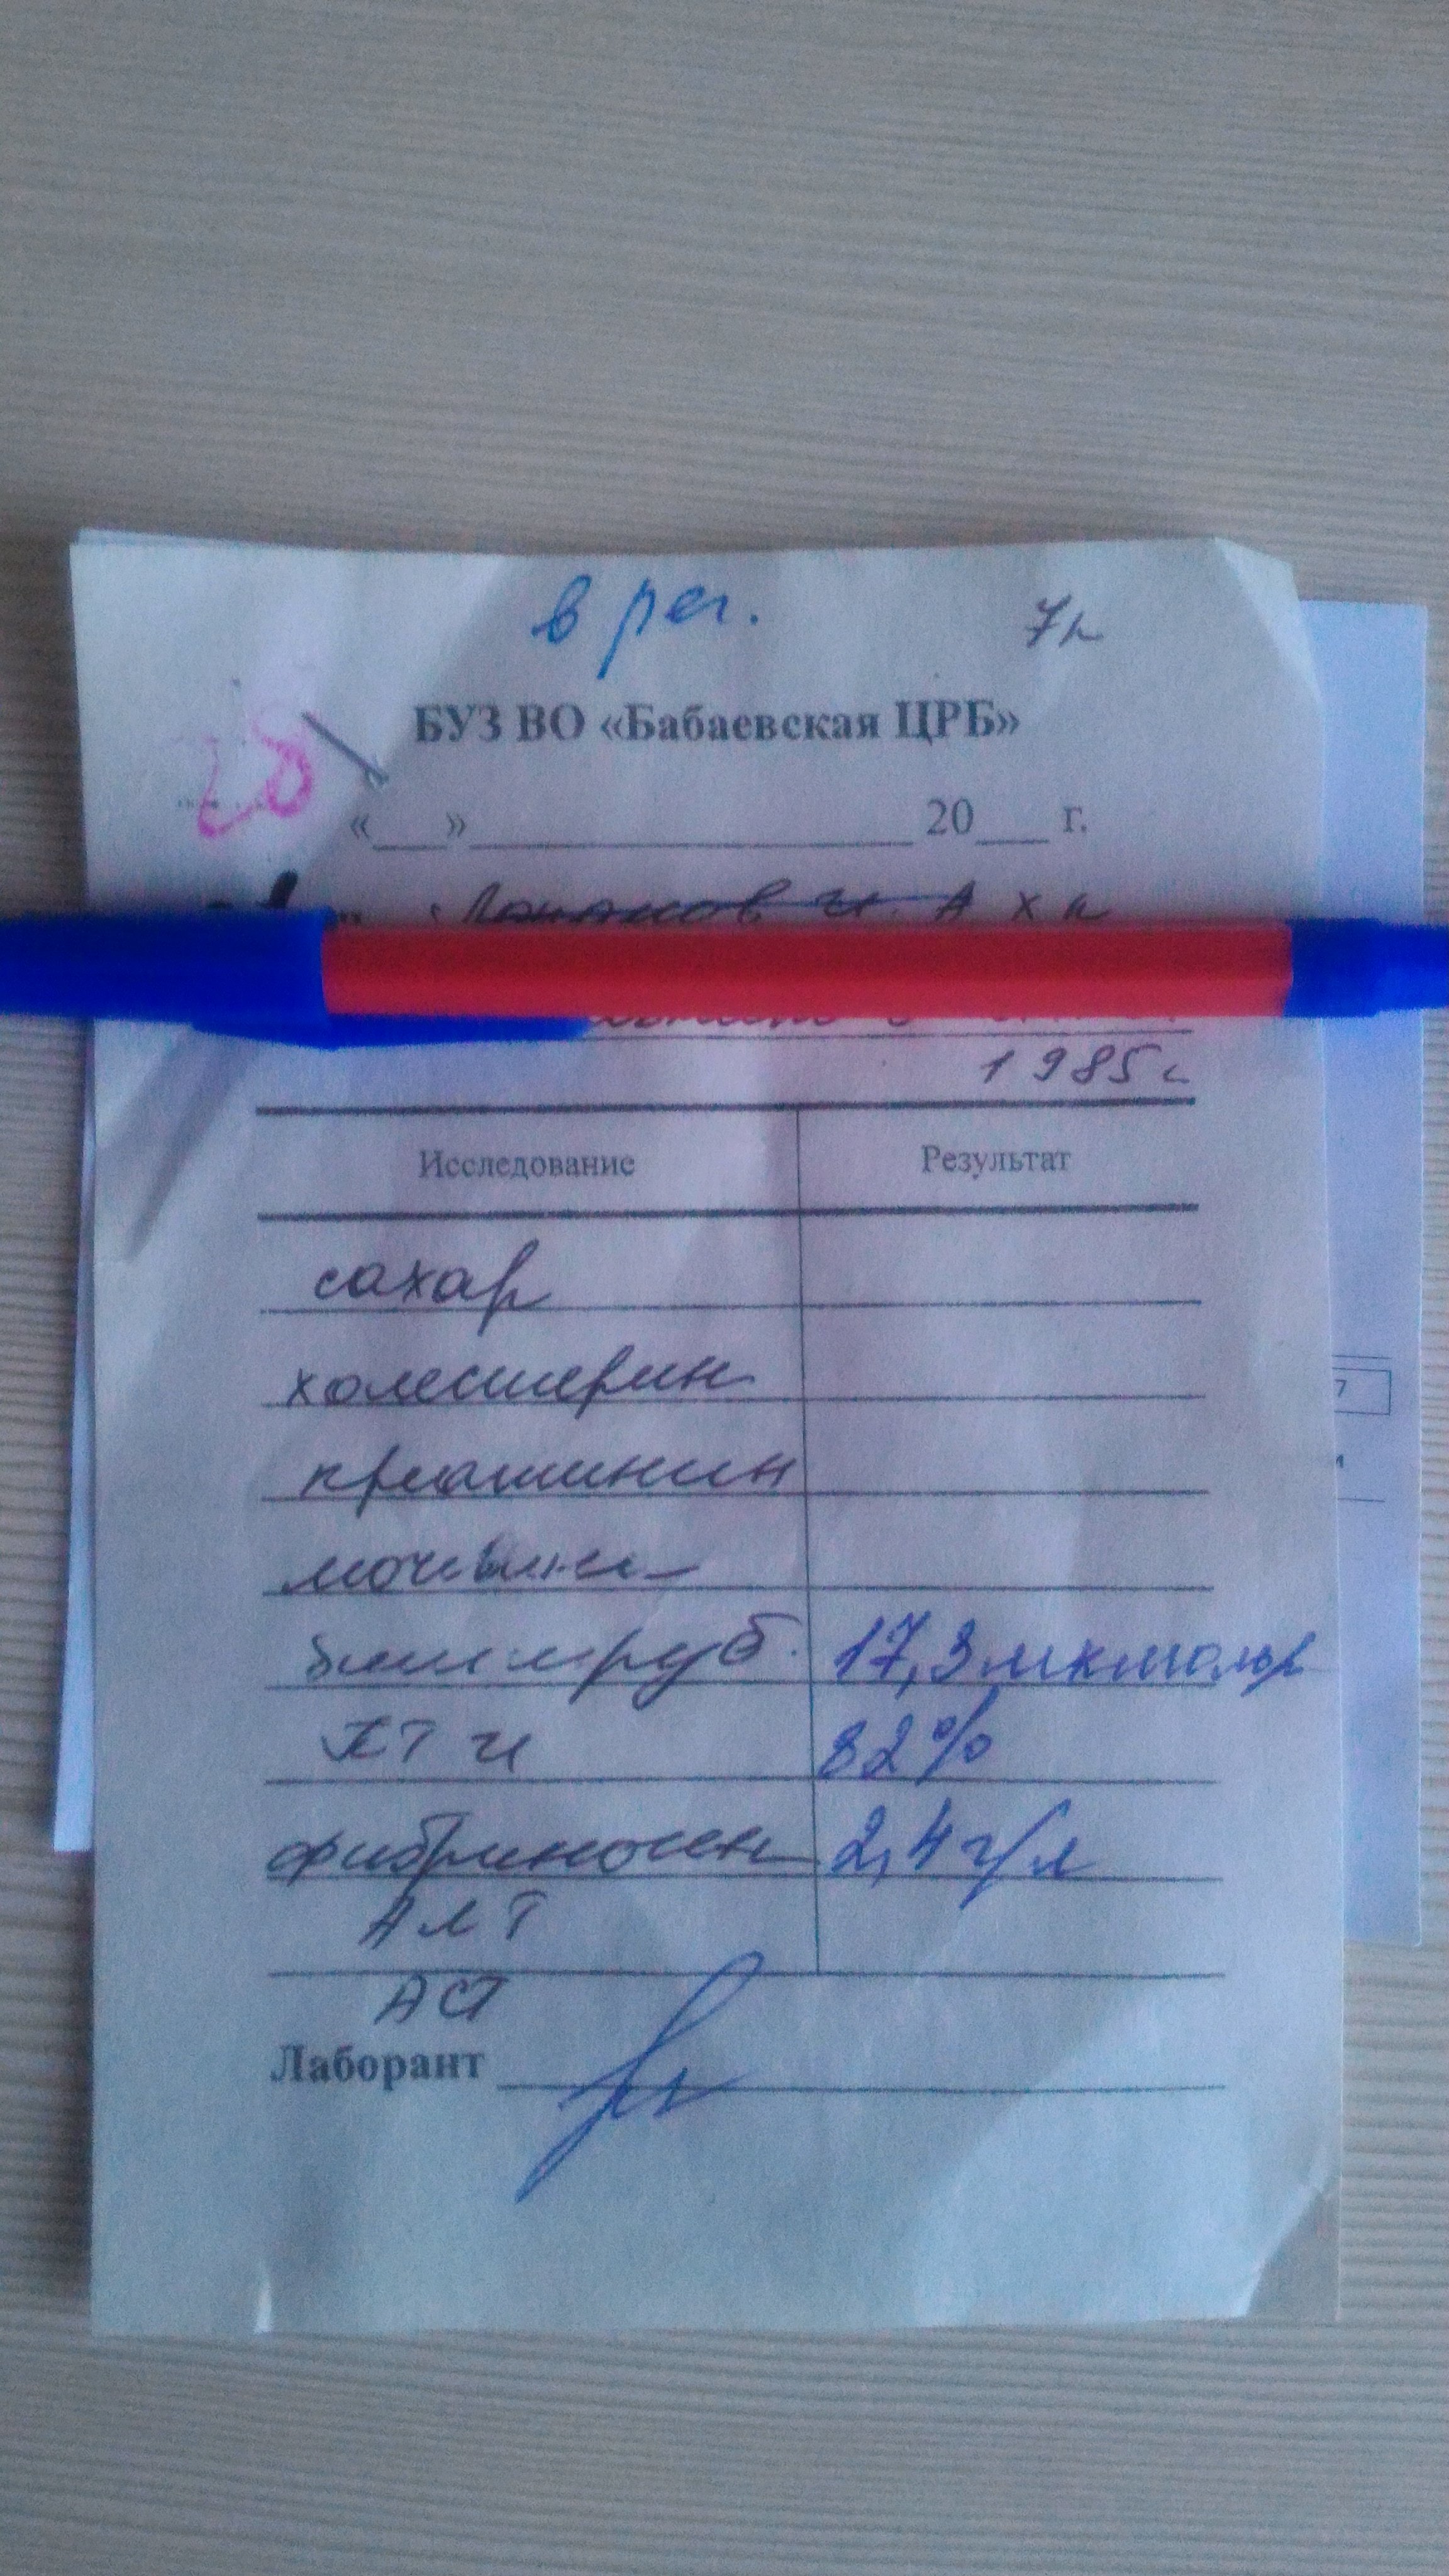 в рег. 7л
БУЗ ВО «Бабаевская ЦРБ»
«___»____________________ 20___ г.
И. А
1985г
Исследование Результат
сахар
холестерин
креатинин
мочевина
билируб. 17,3 мкмоль
ПТИ 82%
фибриноген 2,4 г/л
АЛТ
АСТ
Лаборант
7